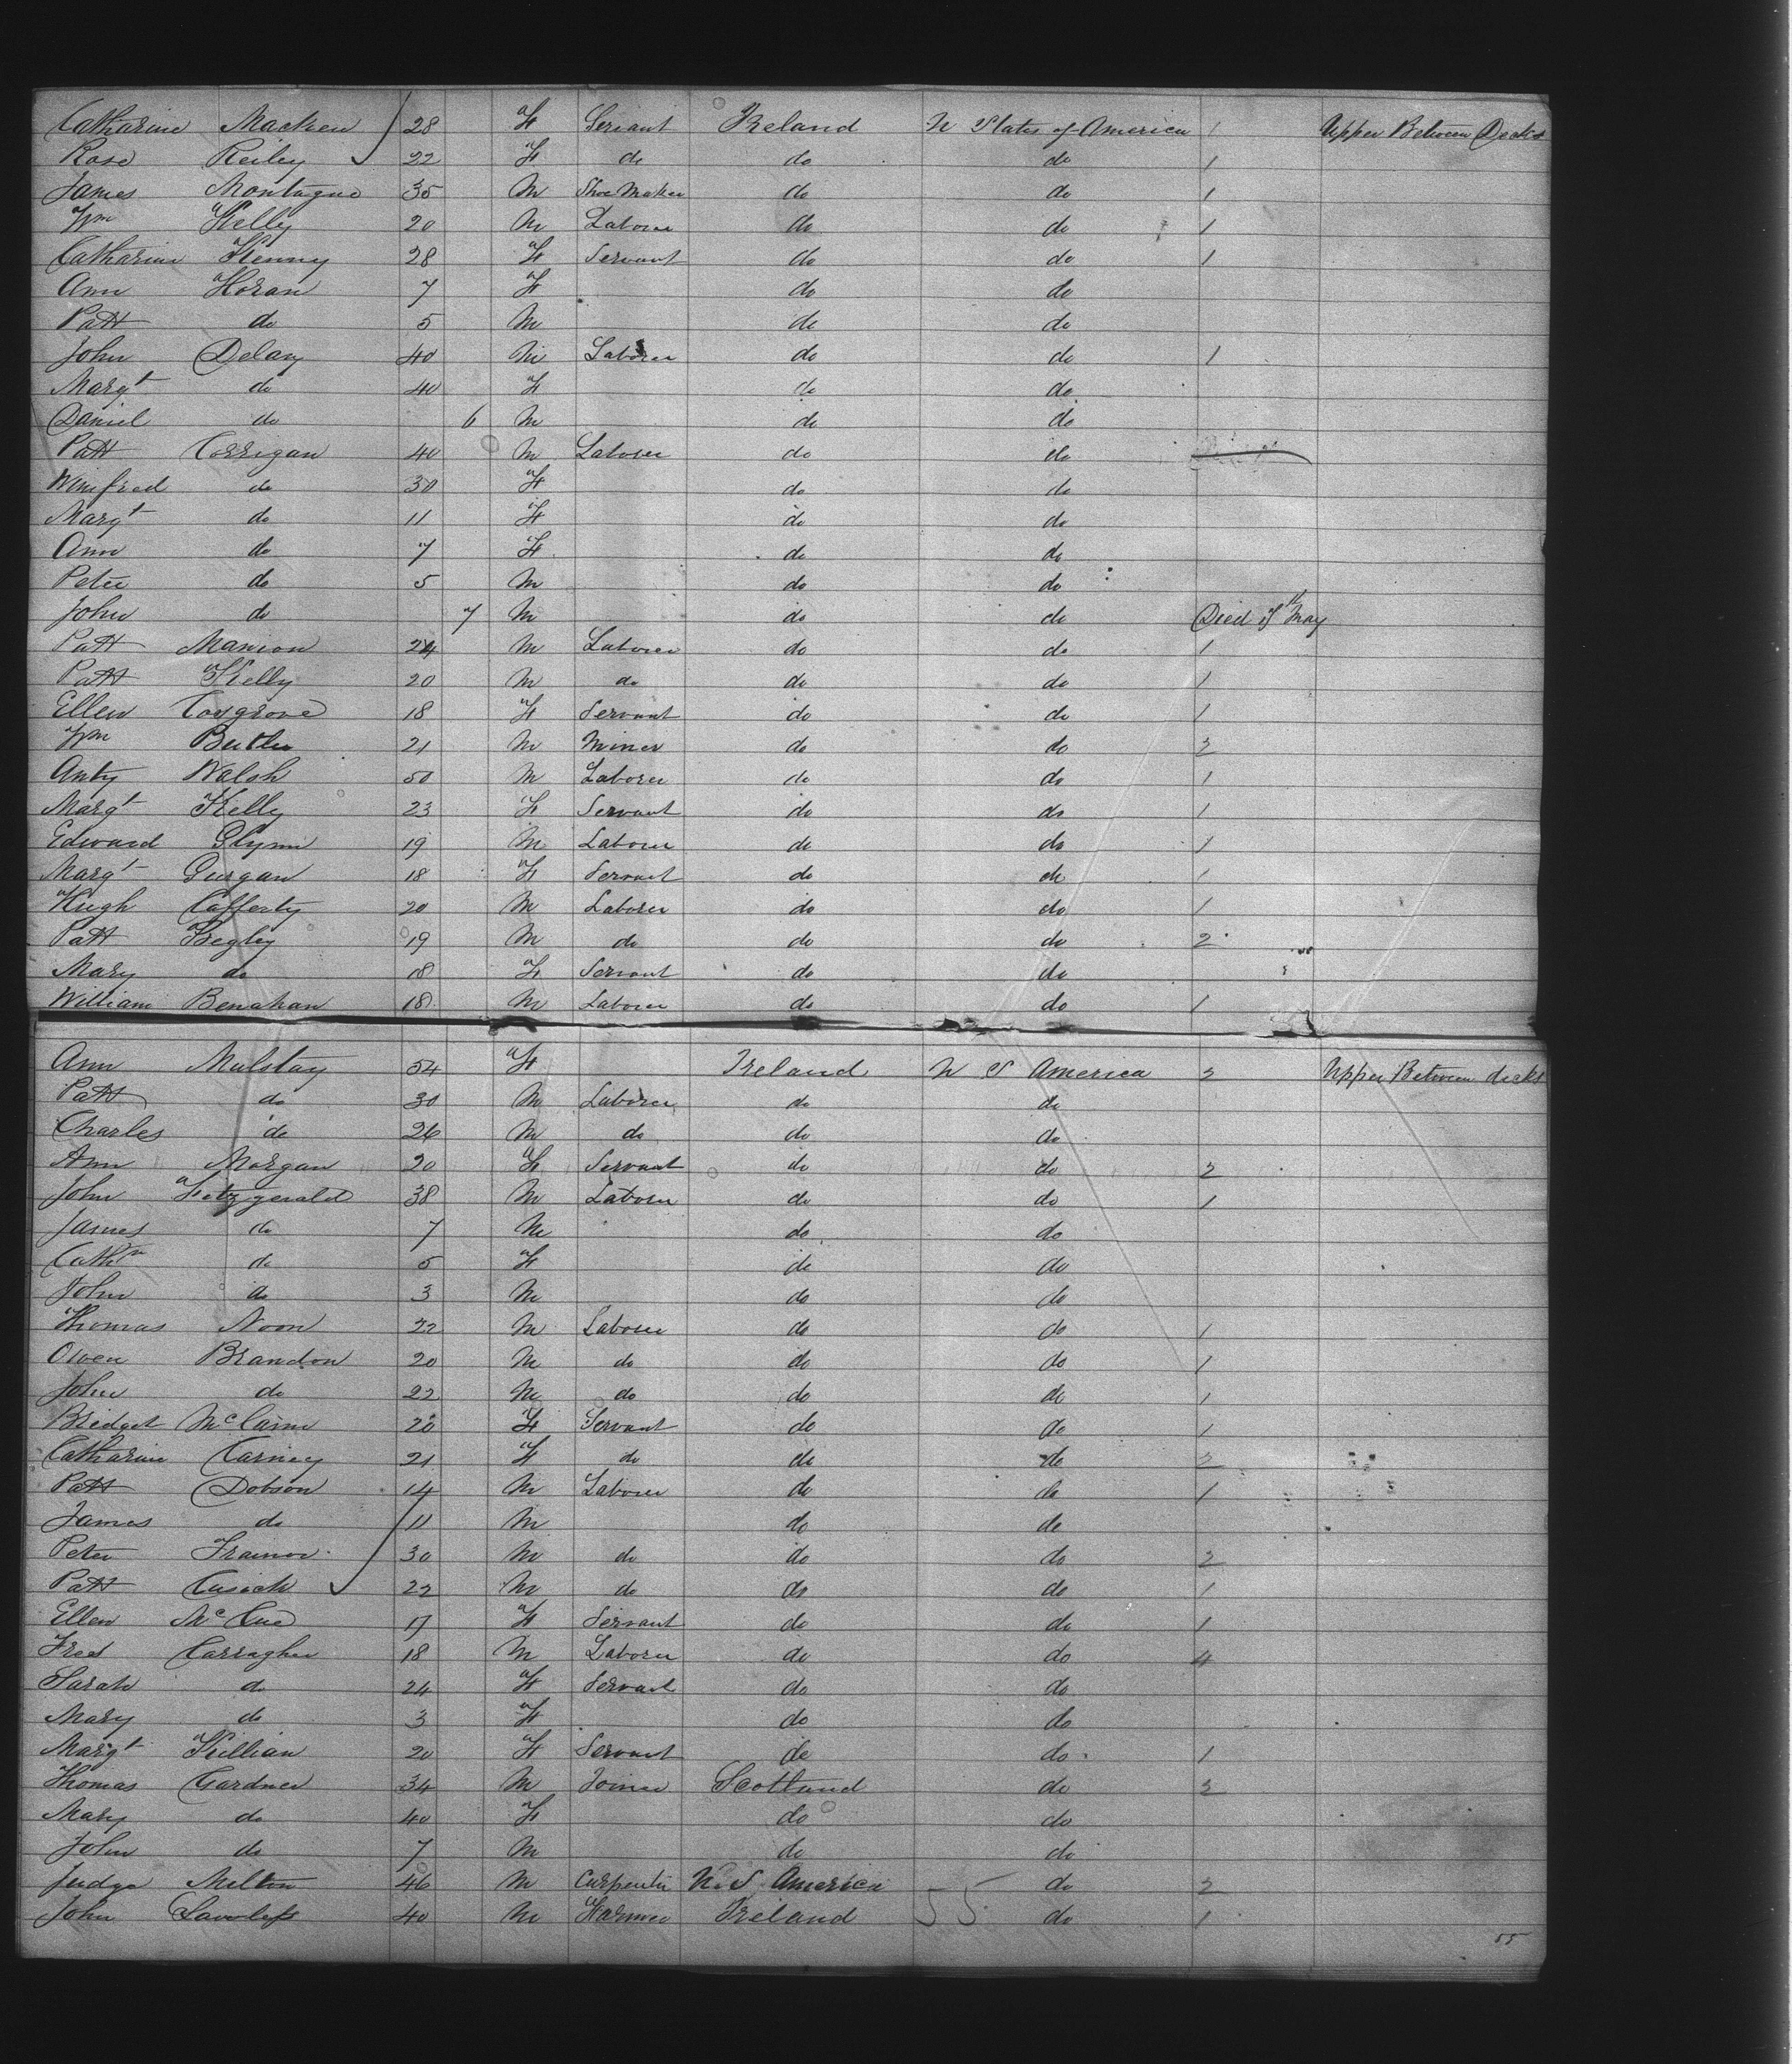 Catharine Macken 28 F Servant Ireland U States of America 1 Upper Between Decks
Rose Reiley 22 F do do do 1
James Montague 35 M Shoe Maker do do 1
Wm Kelly 20 M Laborer do do 1
Catharine Kenny 28 F Servant do do 1
Ann Horan 7 F do do
Patt do 5 M do do
John Delany 40 M Laborer do do 1
Margt do 40 F do do
Daniel do 6 M do do
Patt Corrigan 40 M Laborer do do
Winefred do 30 F do do
Margt do 11 F do do
Ann do 7 F do do
Peter do 5 M do do
John do 7 M do do Died 7th May
Patt Manion 24 M Laborer do do 1
Patt Kelly 20 M do do do 1
Ellen Cosgrove 18 F Servant do do 1
Wm Butler 21 M Miner do do 2
Anty Walsh 50 M Laborer do do 1
Margt Kelly 23 F Servant do do 1
Edward Glynn 19 M Laborer do do 1
Margt Gurgan 18 F Servant do do 1
Hugh Cafferty 20 M Laborer do do 1
Patt Begley 19 M do do do 2
Mary do 18 F Servant do do
William Benahan 18 M Laborer do do 1
Ann Mulstay 54 F Ireland U S America 2 Upper Between decks
Patt do 30 M Laborer do do
Charles do 26 M do do do
Ann Morgan 20 F Servant do do 2
John Fitzgerald 38 M Laborer do do 1
James do 7 M do do
Cathn do 5 F do do
John do 3 M do do
Thomas Noon 22 M Laborer do do 1
Owen Brandon 20 M do do do 1
John do 22 M do do do 1
Bridget McCann 20 F Servant do do 1
Catharine Carney 21 F do do do 2
Patt Dobson 14 M Laborer do do 1
James do 11 M do do
Peter Trainor 30 M do do do 2
Patt Cusick 22 M do do do 1
Ellen McCue 17 F Servant do do 1
Fred Carragher 18 M Laborer do do 4
Sarah do 24 F Servant do do
Mary do 3 F do do
Margt Killian 20 F Servant do do 1
Thomas Gardner 34 M Joiner Scotland do 3
Mary do 40 F do do
John do 7 M do do
Judge Milton 46 M Carpenter U.S. America do 2
John Lawless 40 M Farmer Ireland 55 do 1
55